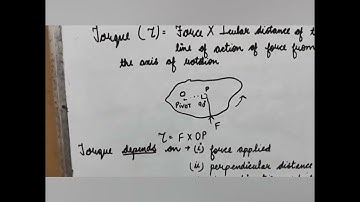 Torque (τ) = Force X ⊥cular distance of t
line of action of force from
the axis of rotation
O
P
Pivot
90
F
τ = F X OP
Torque depends on → (i) force applied
(ii) perpendicular distance